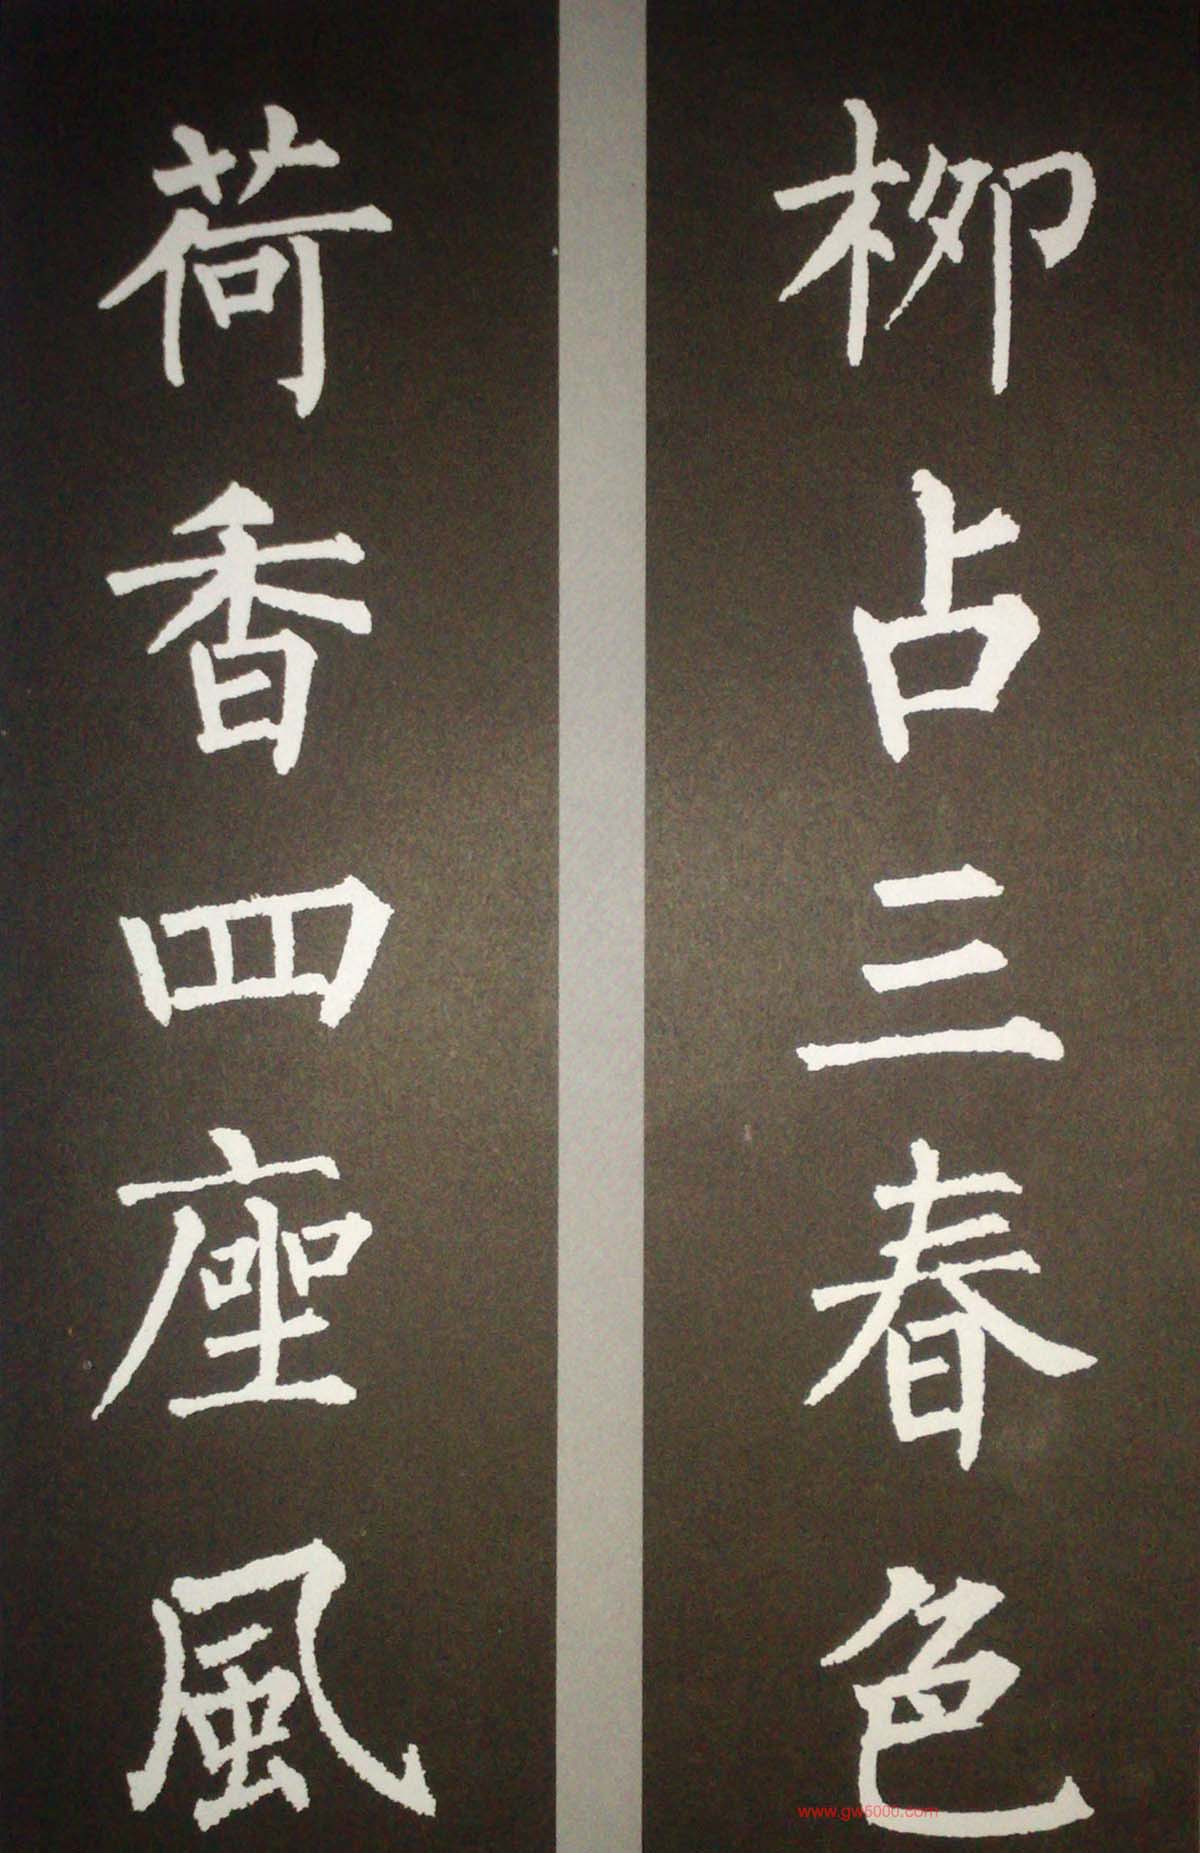 柳占三春色
荷香四座風
www.gw5000.com